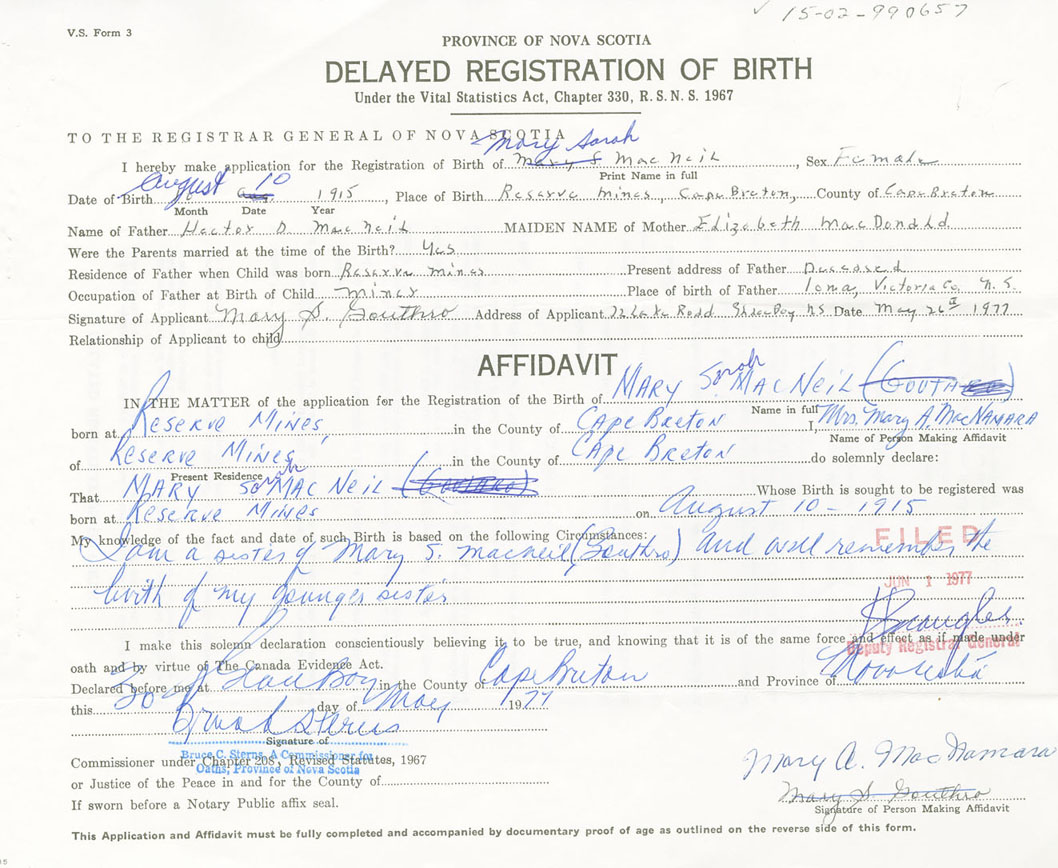 ✓ 15-02-990657
V.S. Form 3
PROVINCE OF NOVA SCOTIA
DELAYED REGISTRATION OF BIRTH
Under the Vital Statistics Act, Chapter 330, R.S.N.S. 1967
TO THE REGISTRAR GENERAL OF NOVA SCOTIA
Mary Sarah
I hereby make application for the Registration of Birth of Mary S MacNeil, Sex Female
Print Name in full
Date of Birth August 10 1915, Place of Birth Reserve Mines, Cape Breton, County of Cape Breton
Month Date Year
Name of Father Hector D MacNeil MAIDEN NAME of Mother Elizabeth MacDonald
Were the Parents married at the time of the Birth? Yes
Residence of Father when Child was born Reserve mines Present address of Father Deceased
Occupation of Father at Birth of Child miner Place of birth of Father Iona, Victoria Co. N.S.
Signature of Applicant Mary S. Gouthro Address of Applicant 72 Lake Road Glace Bay NS Date May 26 1977
Relationship of Applicant to child
AFFIDAVIT
IN THE MATTER of the application for the Registration of the Birth of MARY Sarah MAC NEIL
Name in full
born at RESERVE MINES, in the County of CAPE BRETON I Mrs. Mary A. MacNAMARA
Name of Person Making Affidavit
of RESERVE MINES in the County of CAPE BRETON do solemnly declare:
Present Residence
That MARY Sarah MAC NEIL Whose Birth is sought to be registered was
born at RESERVE MINES on August 10 - 1915
My knowledge of the fact and date of such Birth is based on the following Circumstances:
I am a sister of Mary S. MacNeil (Gouthro) and well remember the
birth of my younger sister
FILED
JUN 1 1977
Deputy Registrar General
I make this solemn declaration conscientiously believing it to be true, and knowing that it is of the same force and effect as if made under
oath and by virtue of The Canada Evidence Act.
Declared before me at Glace Bay in the County of Cape Breton and Province of Nova Scotia
this 30 day of May 1977
Bruce C Sterns
Signature of
Bruce C. Sterns, A Commissioner for
Oaths, Province of Nova Scotia
Commissioner under Chapter 208, Revised Statutes, 1967
or Justice of the Peace in and for the County of
If sworn before a Notary Public affix seal.
Mary A. MacNamara
Mary S Gouthro
Signature of Person Making Affidavit
This Application and Affidavit must be fully completed and accompanied by documentary proof of age as outlined on the reverse side of this form.